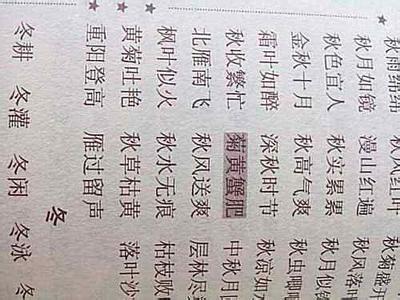 秋雨绵绵 秋风红叶 秋菊盛开
秋月如镜 漫山红遍 秋风落叶
秋色宜人 秋实累累 秋月似
金秋十月 秋高气爽 秋虫唧
霜叶如醉 深秋时节 秋凉如
秋收繁忙 菊黄蟹肥 中秋月圆
北雁南飞 秋风送爽 层林尽
枫叶似火 秋水无痕 枯枝败
黄菊吐艳 秋草枯黄 落叶沙
重阳登高 雁过留声
冬
冬耕 冬灌 冬闲 冬泳 冬